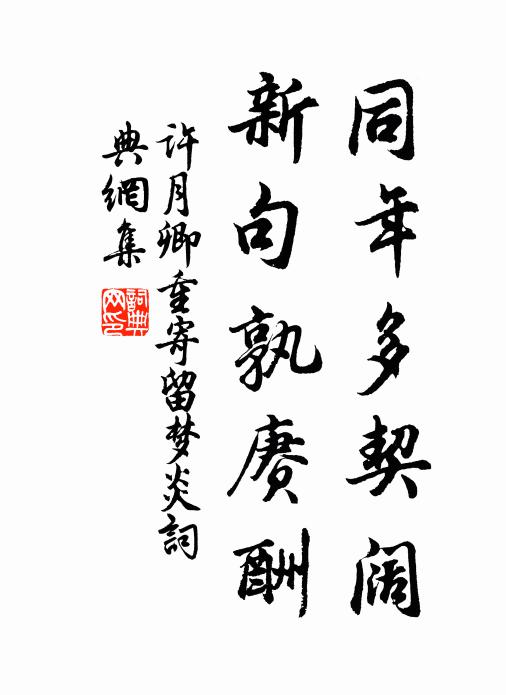 同年多契阔
新句孰赓酬
许月卿重寄留梦炎詞
典網集
詞典
网印